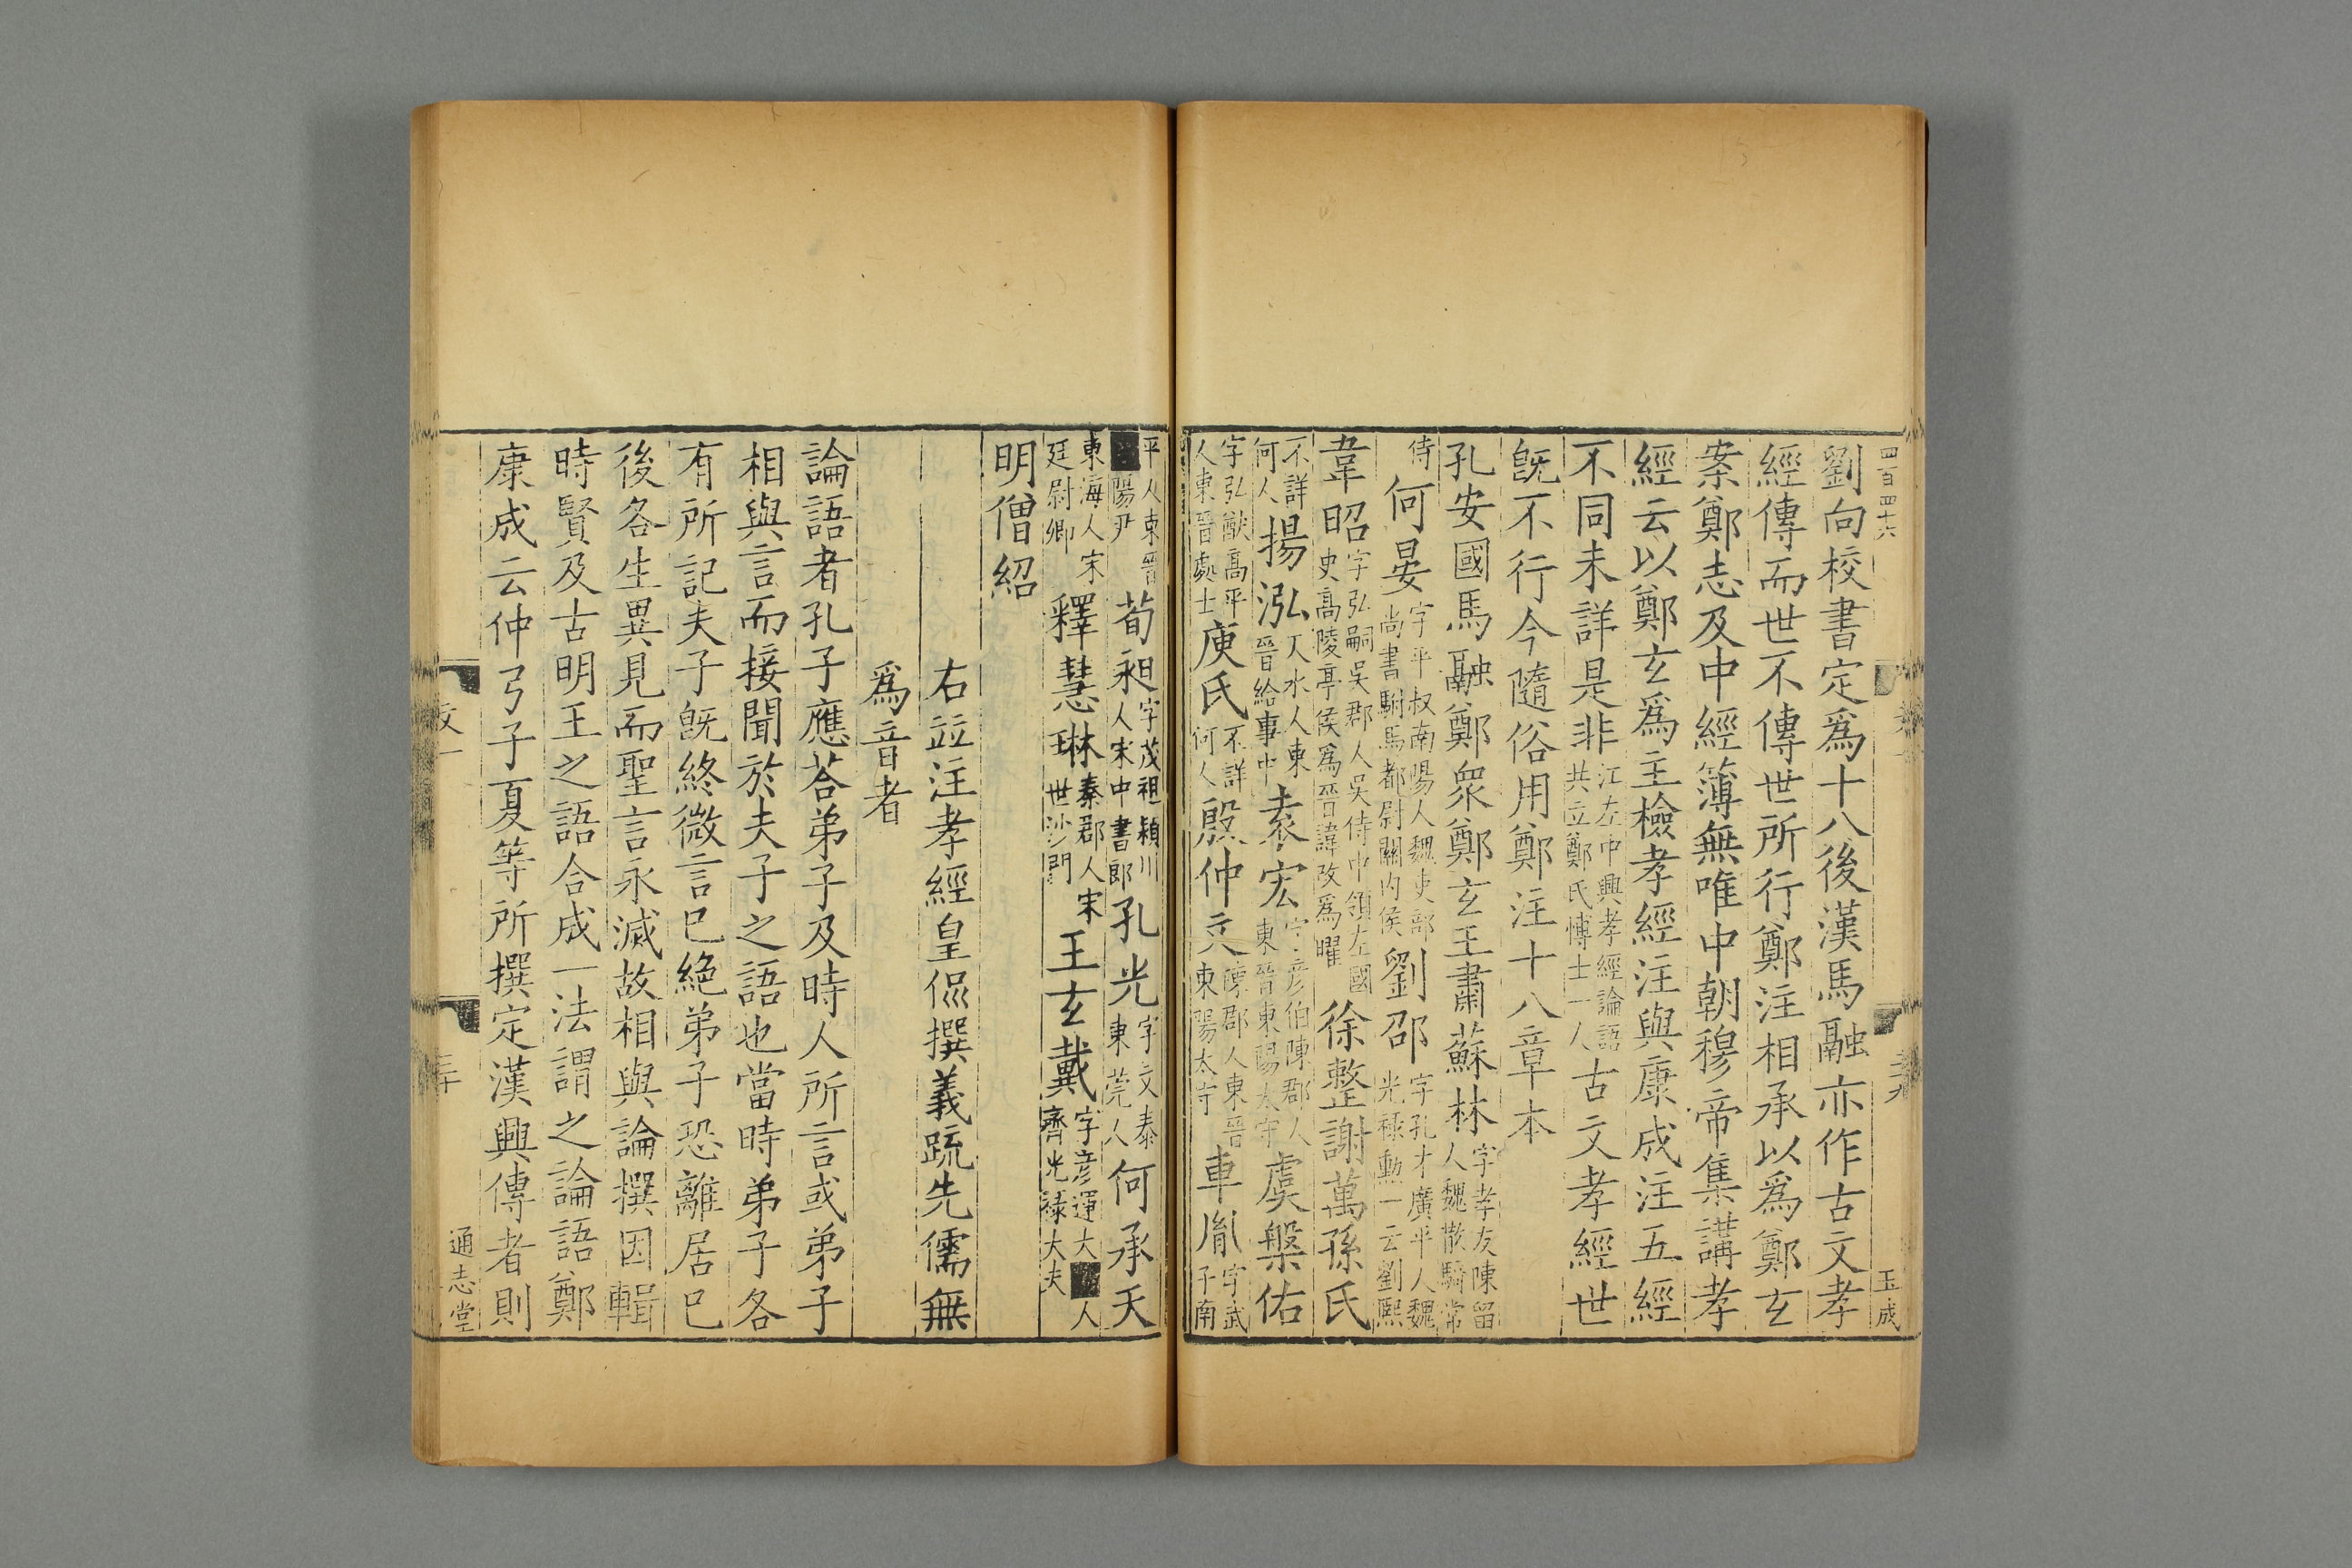 四百四十六
玉成
劉向校書定爲十八後漢馬融亦作古文孝
經傳而世不傳世所行鄭注相承以爲鄭玄
案鄭志及中經簿無唯中朝穆帝集講孝
經云以鄭玄爲主檢孝經注與康成注五經
不同未詳是非江左中興孝經論語共立鄭氏博士一人古文孝經世
旣不行今隨俗用鄭注十八章本
孔安國馬融鄭衆鄭玄王肅蘇林字孝友陳留人魏散騎常
侍何晏字平叔南陽人魏吏部尚書駙馬都尉關內侯劉邵字孔才廣平人魏光祿勳一云劉熙
韋昭字弘嗣吳郡人吳侍中領左國史高陵亭侯爲晉諱改爲曜徐整謝萬孫氏
不詳何人揚泓天水人東晉給事中袁宏字彥伯陳郡人東晉東陽太守虞槃佑
字弘猷高平人東晉處士庾氏不詳何人殷仲文陳郡人東晉東陽太守車胤字武子南
平人東晉陽尹荀昶字茂祖潁川人宋中書郎孔光字文泰東莞人何承天
東海人宋廷尉卿釋慧琳秦郡人宋世沙門王玄戴字彥運大人齊光祿大夫
明僧紹
右竝注孝經皇侃撰義疏先儒無
爲音者
論語者孔子應荅弟子及時人所言或弟子
相與言而接聞於夫子之語也當時弟子各
有所記夫子旣終微言已絕弟子恐離居已
後各生異見而聖言永滅故相與論撰因輯
時賢及古明王之語合成一法謂之論語鄭
康成云仲弓子夏等所撰定漢興傳者則
文一
三十
通志堂